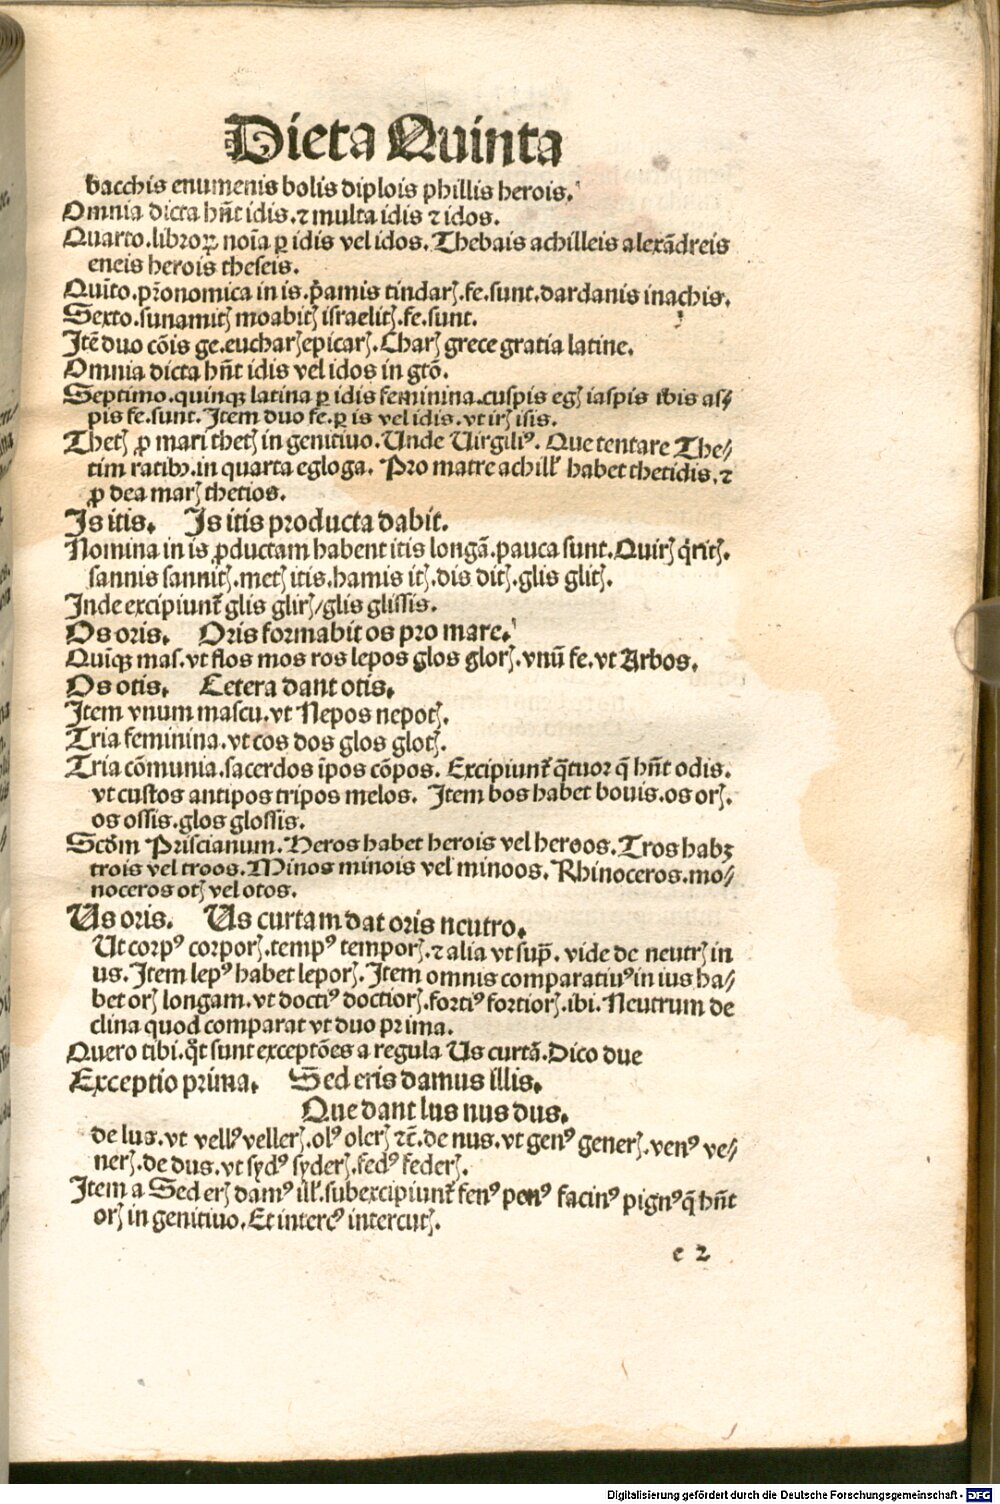 Dieta Quinta
bacchis enumenis bolis diplois phillis herois.
Omnia dicta hñt idis. ⁊ multa idis ⁊ idos.
Quarto. libroꝝ noīa ꝑ idis vel idos. Thebais achilleis alexãdreis
eneis herois theseis.
Quīto. pꝛonomica in is. p̃amis tindarꝭ. fe. sunt. dardanis inachis.
Sexto. sunamitꝭ moabitꝭ israelitꝭ. fe. sunt.
Itẽ duo cõis ge. eucharꝭ epicarꝭ. Charꝭ grece gratia latine.
Omnia dicta hñt idis vel idos in gtõ.
Septimo. quinqꝫ latina ꝑ idis feminina. cuspis egꝭ iaspis ibis as⸗
pis fe. sunt. Item duo fe. ꝑ is vel idis. vt irꝭ isis.
Thetꝭ ꝓ mari thetꝭ in genitiuo. Unde Uirgiliꝰ. Que tentare The⸗
tim ratibꝫ. in quarta egloga. Pro matre achill' habet thetidis. ⁊
ꝓ dea marꝭ thetios.
Is itis. Is itis producta dabit.
Nomina in is ꝓductam habent itis longã. pauca sunt. Quirꝭ q̃ritꝭ.
sannis sannitꝭ. metꝭ itis. hamis itꝭ. dis ditꝭ. glis glitꝭ.
Inde excipiunt̃ glis glirꝭ/glis glissis.
Os oris. Oris formabit os pro mare.
Quīqꝫ mas. vt flos mos ros lepos glos glorꝭ. vnũ fe. vt Arbos.
Os otis. Cetera dant otis.
Item vnum mascu. vt Nepos nepotꝭ.
Tria feminina. vt cos dos glos glotꝭ.
Tria cõmunia. sacerdos īpos cõpos. Excipiunt̃ q̃tuor q̃ hñt odis.
vt custos antipos tripos melos. Item bos habet bouis. os orꝭ.
os ossis. glos glossis.
Scđm Priscianum. Heros habet herois vel heroos. Tros habꝫ
trois vel troos. Minos minois vel minoos. Rhinoceros. mo⸗
noceros otꝭ vel otos.
Us oris. Us curtam dat oris neutro.
Ut corpꝰ corporꝭ. tempꝰ temporꝭ. ⁊ alia vt sup̃. vide de neutrꝭ in
us. Item lepꝰ habet leporꝭ. Item omnis comparatiuꝰ in ius ha⸗
bet orꝭ longam. vt doctiꝰ doctiorꝭ. fortiꝰ fortiorꝭ. ibi. Neutrum de
clina quod comparat vt duo prima.
Quero tibi. q̃t sunt exceptões a regula Us curtã. Dico due
Exceptio prima. Sed eris damus illis.
Que dant lus nus dus.
de lus. vt vellꝰ vellerꝭ. olꝰ olerꝭ ⁊c̃. de nus. vt genꝰ generꝭ. venꝰ ve⸗
nerꝭ. de dus. vt sydꝰ syderꝭ. fedꝰ federꝭ.
Item a Sed erꝭ damꝰ ill'. subexcipiunt̃ fenꝰ penꝰ facinꝰ pignꝰ q̃ hñt
orꝭ in genitiuo. Et intercꝰ intercutꝭ.
e 2
Digitalisierung gefördert durch die Deutsche Forschungsgemeinschaft - DFG